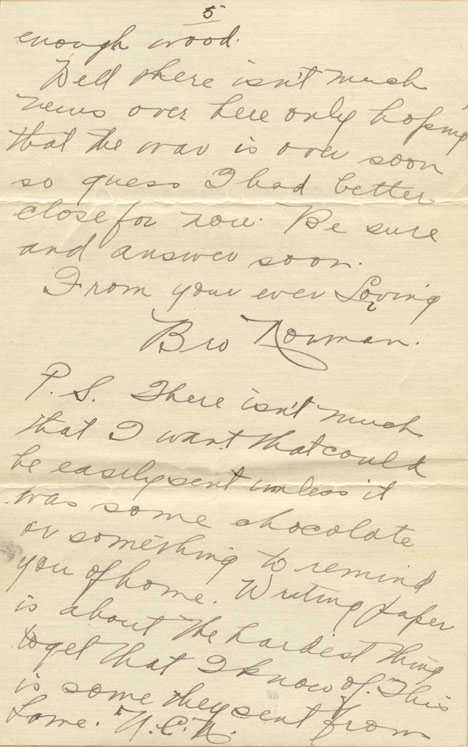 5
enough wood.
Well there isn't much
news over here only hoping
that the war is over soon
so guess I had better
close for now. Be sure
and answer soon.
From your ever Loving
Bro Norman.
P.S. There isn't much
that I want that could
be easily sent unless it
was some chocolate
or something to remind
you of home. Writing paper
is about the hardest thing
to get that I know of. This
is some they sent from
home. N.C.N.